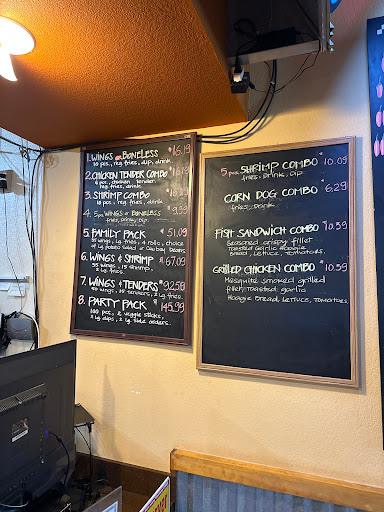 1. WINGS or BONELESS $16.19
10 pcs, reg. fries, dip, drink
2. CHICKEN TENDER COMBO
reg. fries, drink
3. SHRIMP COMBO
10 pcs, reg. fries, drink
4. 5 pcs WINGS or BONELESS 9.99
fries, drink, dip
5. FAMILY PACK $51.09
6. WINGS & SHRIMP $67.09
35 wings, 15 shrimp,
2 lg. fries
7. WINGS & TENDERS $92.50
2 lg. fries
8. PARTY PACK $145.99
100 pcs, 2 veggie sticks,
2 lg dips, 2 lg side orders.
5 pcs SHRIMP COMBO $10.09
fries, drink, dip
CORN DOG COMBO $6.29
fries, drink
FISH SANDWICH COMBO $10.39
Seasoned crispy fillet
Toasted Garlic Hoagie
Bread, lettuce, tomatoes.
GRILLED CHICKEN COMBO $10.39
Mesquite smoked grilled
fillet, toasted garlic
Hoagie Bread, Lettuce, Tomatoes